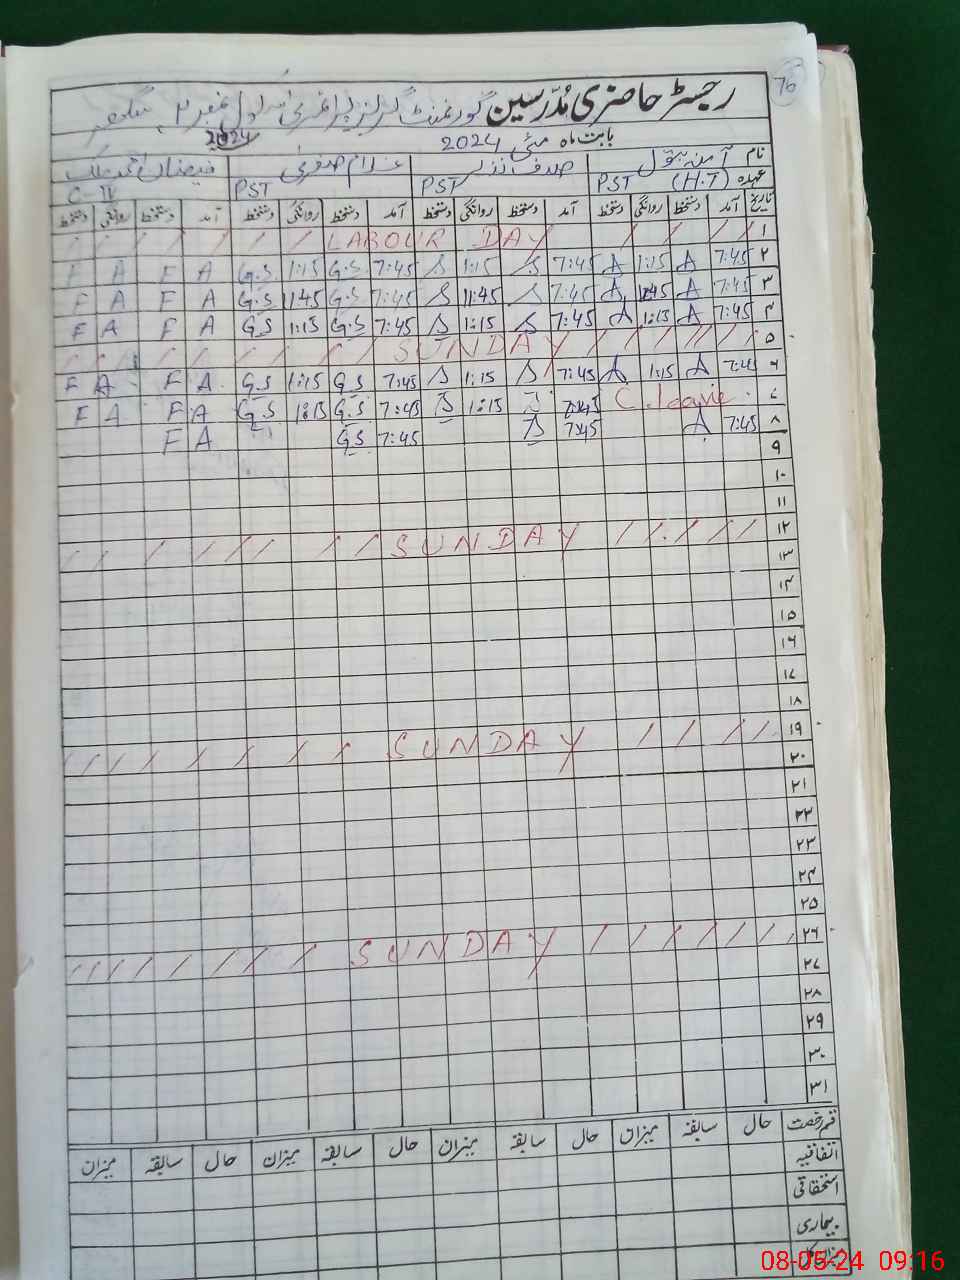 76
رجسٹر حاضری مُدرّسین گورنمنٹ گرلز پرائمری سکول نمبر ۲
بابت ماہ مئی 2024 2024
نام آمنہ بتول صدف نذیر غلام صغریٰ فیضان
عہدہ PST (H.T) PST PST C-IV
تاریخ آمد دستخط روانگی دستخط آمد دستخط روانگی دستخط آمد دستخط روانگی دستخط آمد دستخط روانگی دستخط
۱ LABOUR DAY
۲ 7:45 A 1:15 A 7:45 S 1:15 S 7:45 G.S 1:15 G.S A F A F
۳ 7:45 A 11:45 A 7:45 S 11:45 S 7:45 G.S 11:45 G.S A F A F
۴ 7:45 A 1:15 A 7:45 S 1:15 S 7:45 G.S 1:15 G.S A F A F
۵ SUNDAY
۶ 7:45 A 1:15 A 7:45 S 1:15 S 7:45 G.S 1:15 G.S A F A F
۷ C.leave 7:45 S 1:15 S 7:45 G.S 1:15 G.S A F A F
۸ 7:45 A 7:45 S 7:45 G.S A F
۹
۱۰
۱۱
۱۲ SUNDAY
۱۳
۱۴
۱۵
۱۶
۱۷
۱۸
۱۹ SUNDAY
۲۰
۲۱
۲۲
۲۳
۲۴
۲۵
۲۶ SUNDAY
۲۷
۲۸
۲۹
۳۰
۳۱
قسم رخصت حال سابقہ میزان حال سابقہ میزان حال سابقہ میزان حال سابقہ میزان
اتفاقیہ
استحقاقی
بیماری
میزان کل
08-05-24 09:16